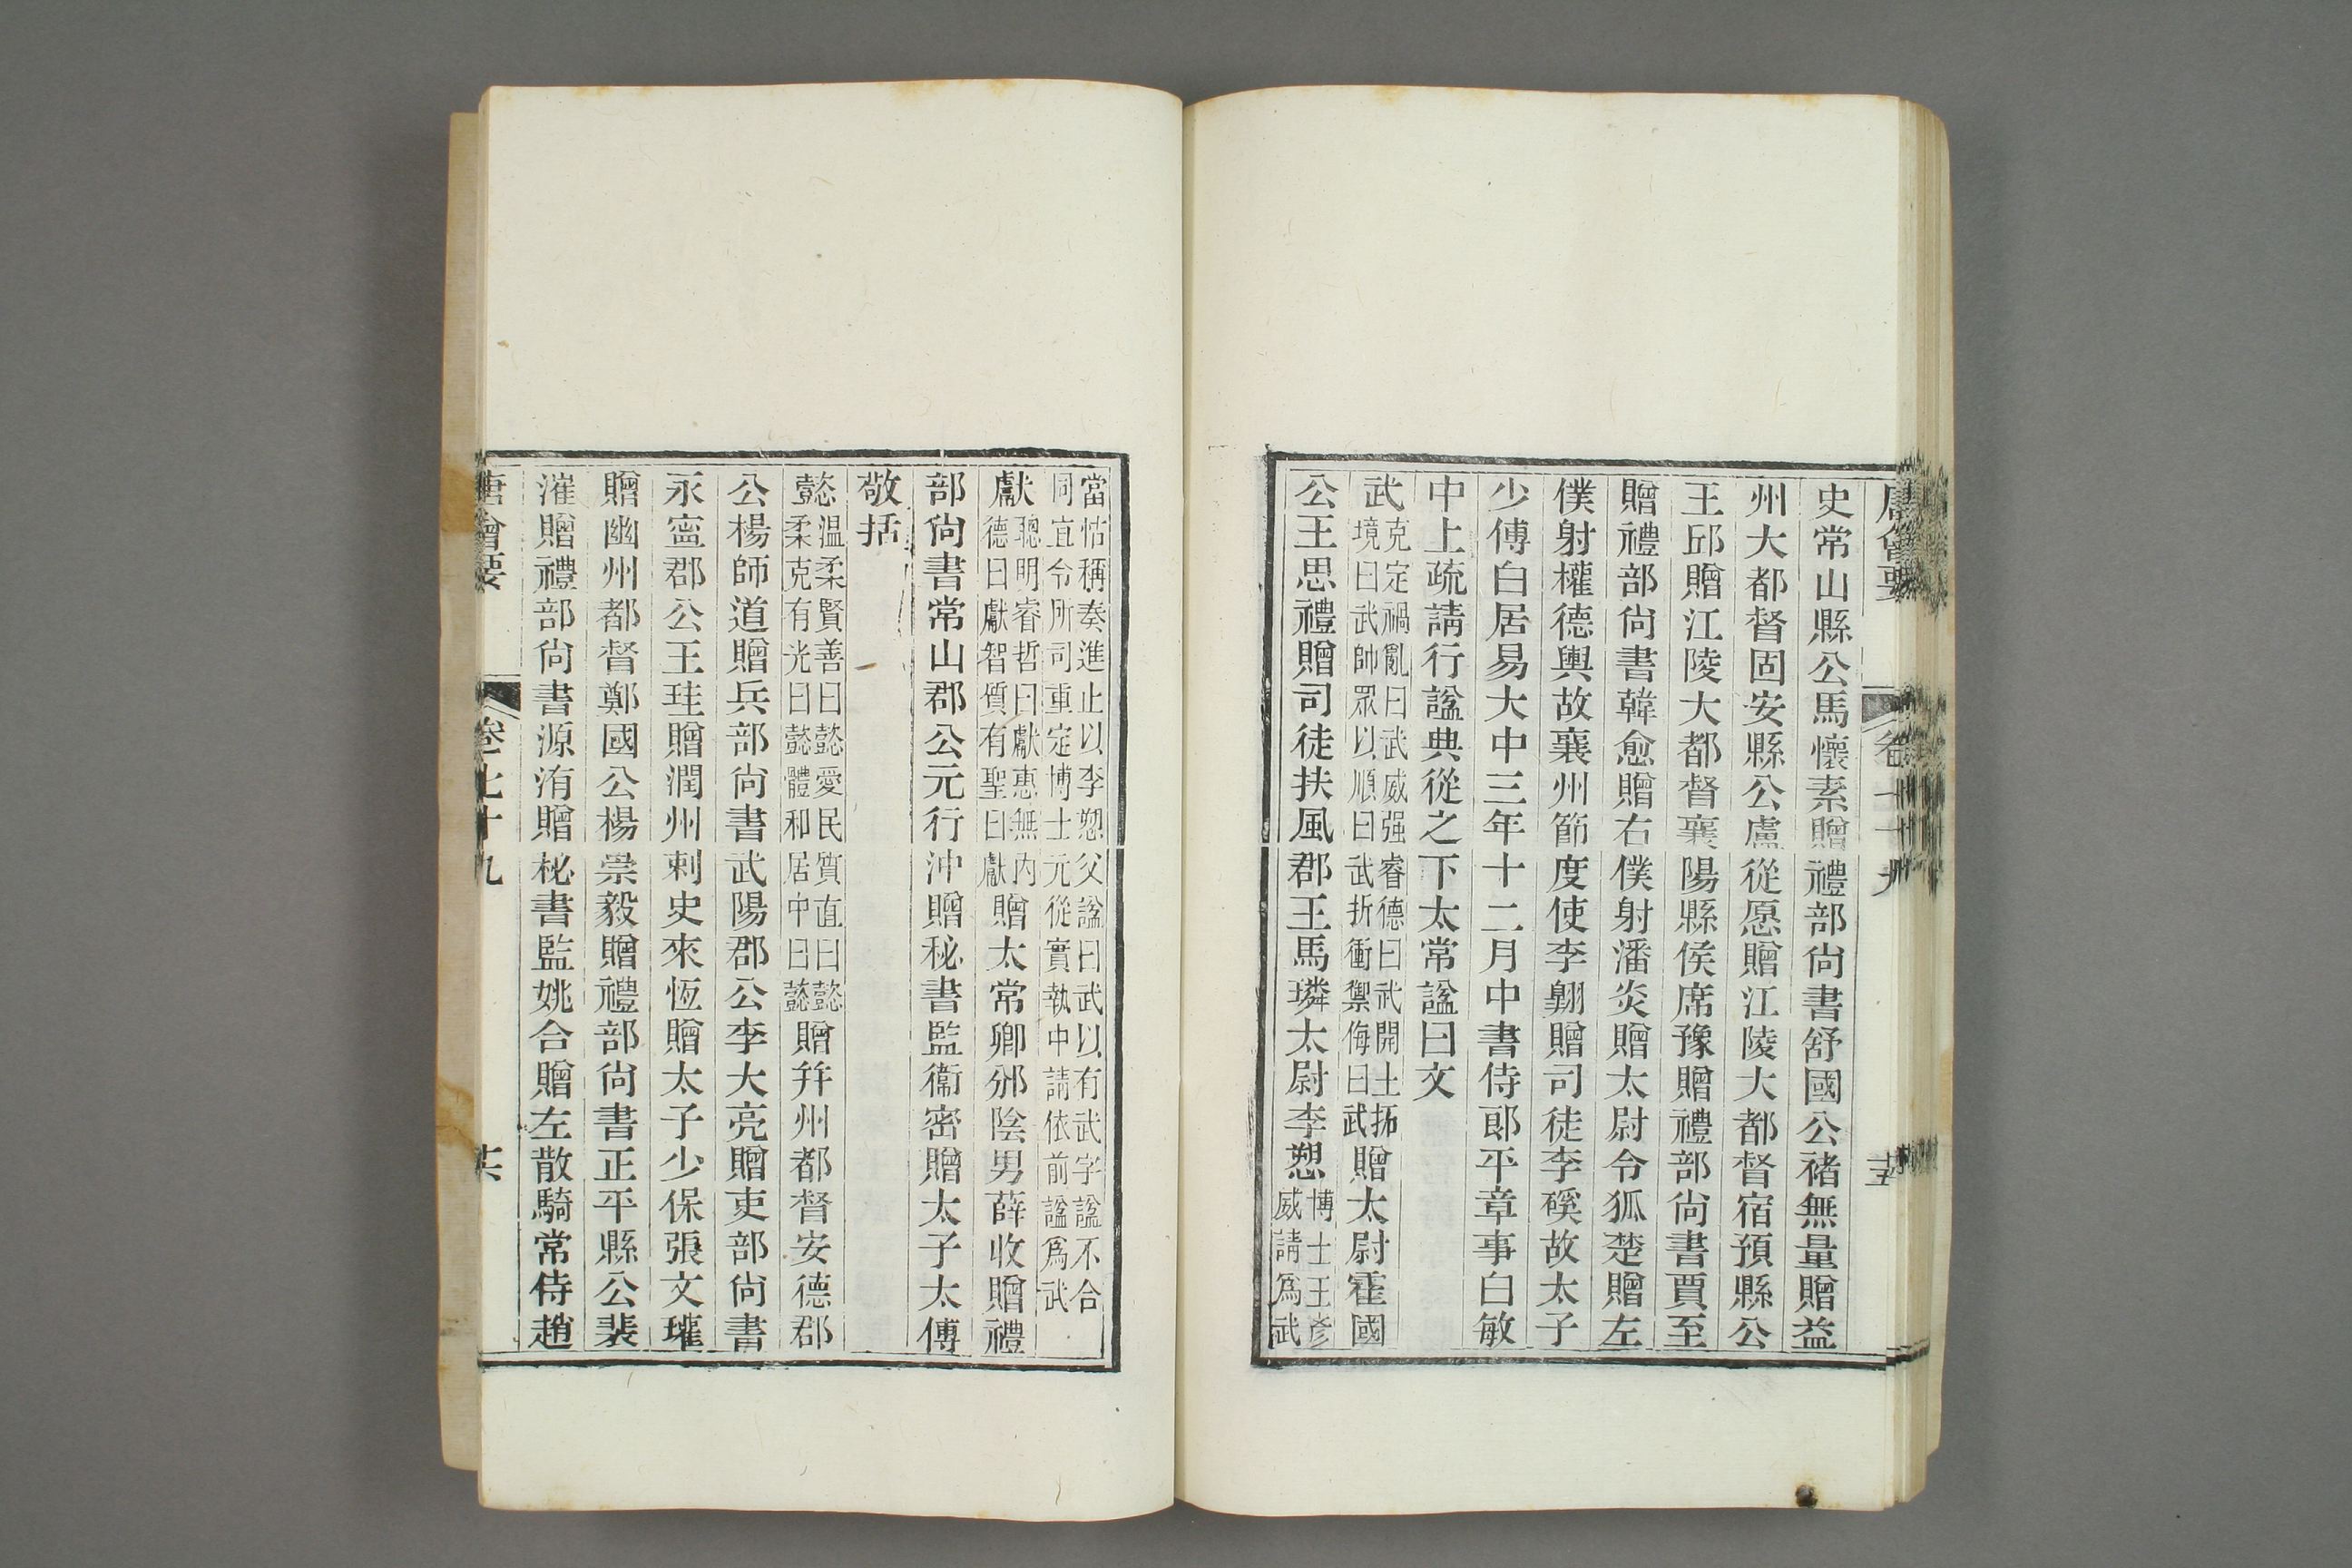 唐會要 卷七十九 十五
史常山縣公馬懷素贈禮部尙書舒國公褚無量贈益
州大都督固安縣公盧從愿贈江陵大都督宿預縣公
王邱贈江陵大都督襄陽縣侯席豫贈禮部尙書賈至
贈禮部尙書韓愈贈右僕射潘炎贈太尉令狐楚贈左
僕射權德輿故襄州節度使李翺贈司徒李磎故太子
少傅白居易大中三年十二月中書侍郎平章事白敏
中上疏請行諡典從之下太常諡曰文
武克定禍亂曰武威强睿德曰武開土拓境曰武帥眾以順曰武折衝禦侮曰武贈太尉霍國
公王思禮贈司徒扶風郡王馬璘太尉李愬博士王彥威請爲武
當怙稱奏進止以李愬父諡曰武以有武字諡不合
同宜令所司重定博士元從實執中請依前諡爲武
獻聰明睿哲曰獻惠無內德曰獻智質有聖曰獻贈太常卿邠陰男薛收贈禮
部尙書常山郡公元行沖贈秘書監衞密贈太子太傅
敬括
懿温柔賢善曰懿愛民質直曰懿柔克有光曰懿體和居中曰懿贈幷州都督安德郡
公楊師道贈兵部尙書武陽郡公李大亮贈吏部尙書
永寧郡公王珪贈潤州刺史來恆贈太子少保張文瓘
贈幽州都督鄭國公楊崇毅贈禮部尙書正平縣公裴
漼贈禮部尙書源洧贈秘書監姚合贈左散騎常侍趙
唐會要 卷七十九 十六